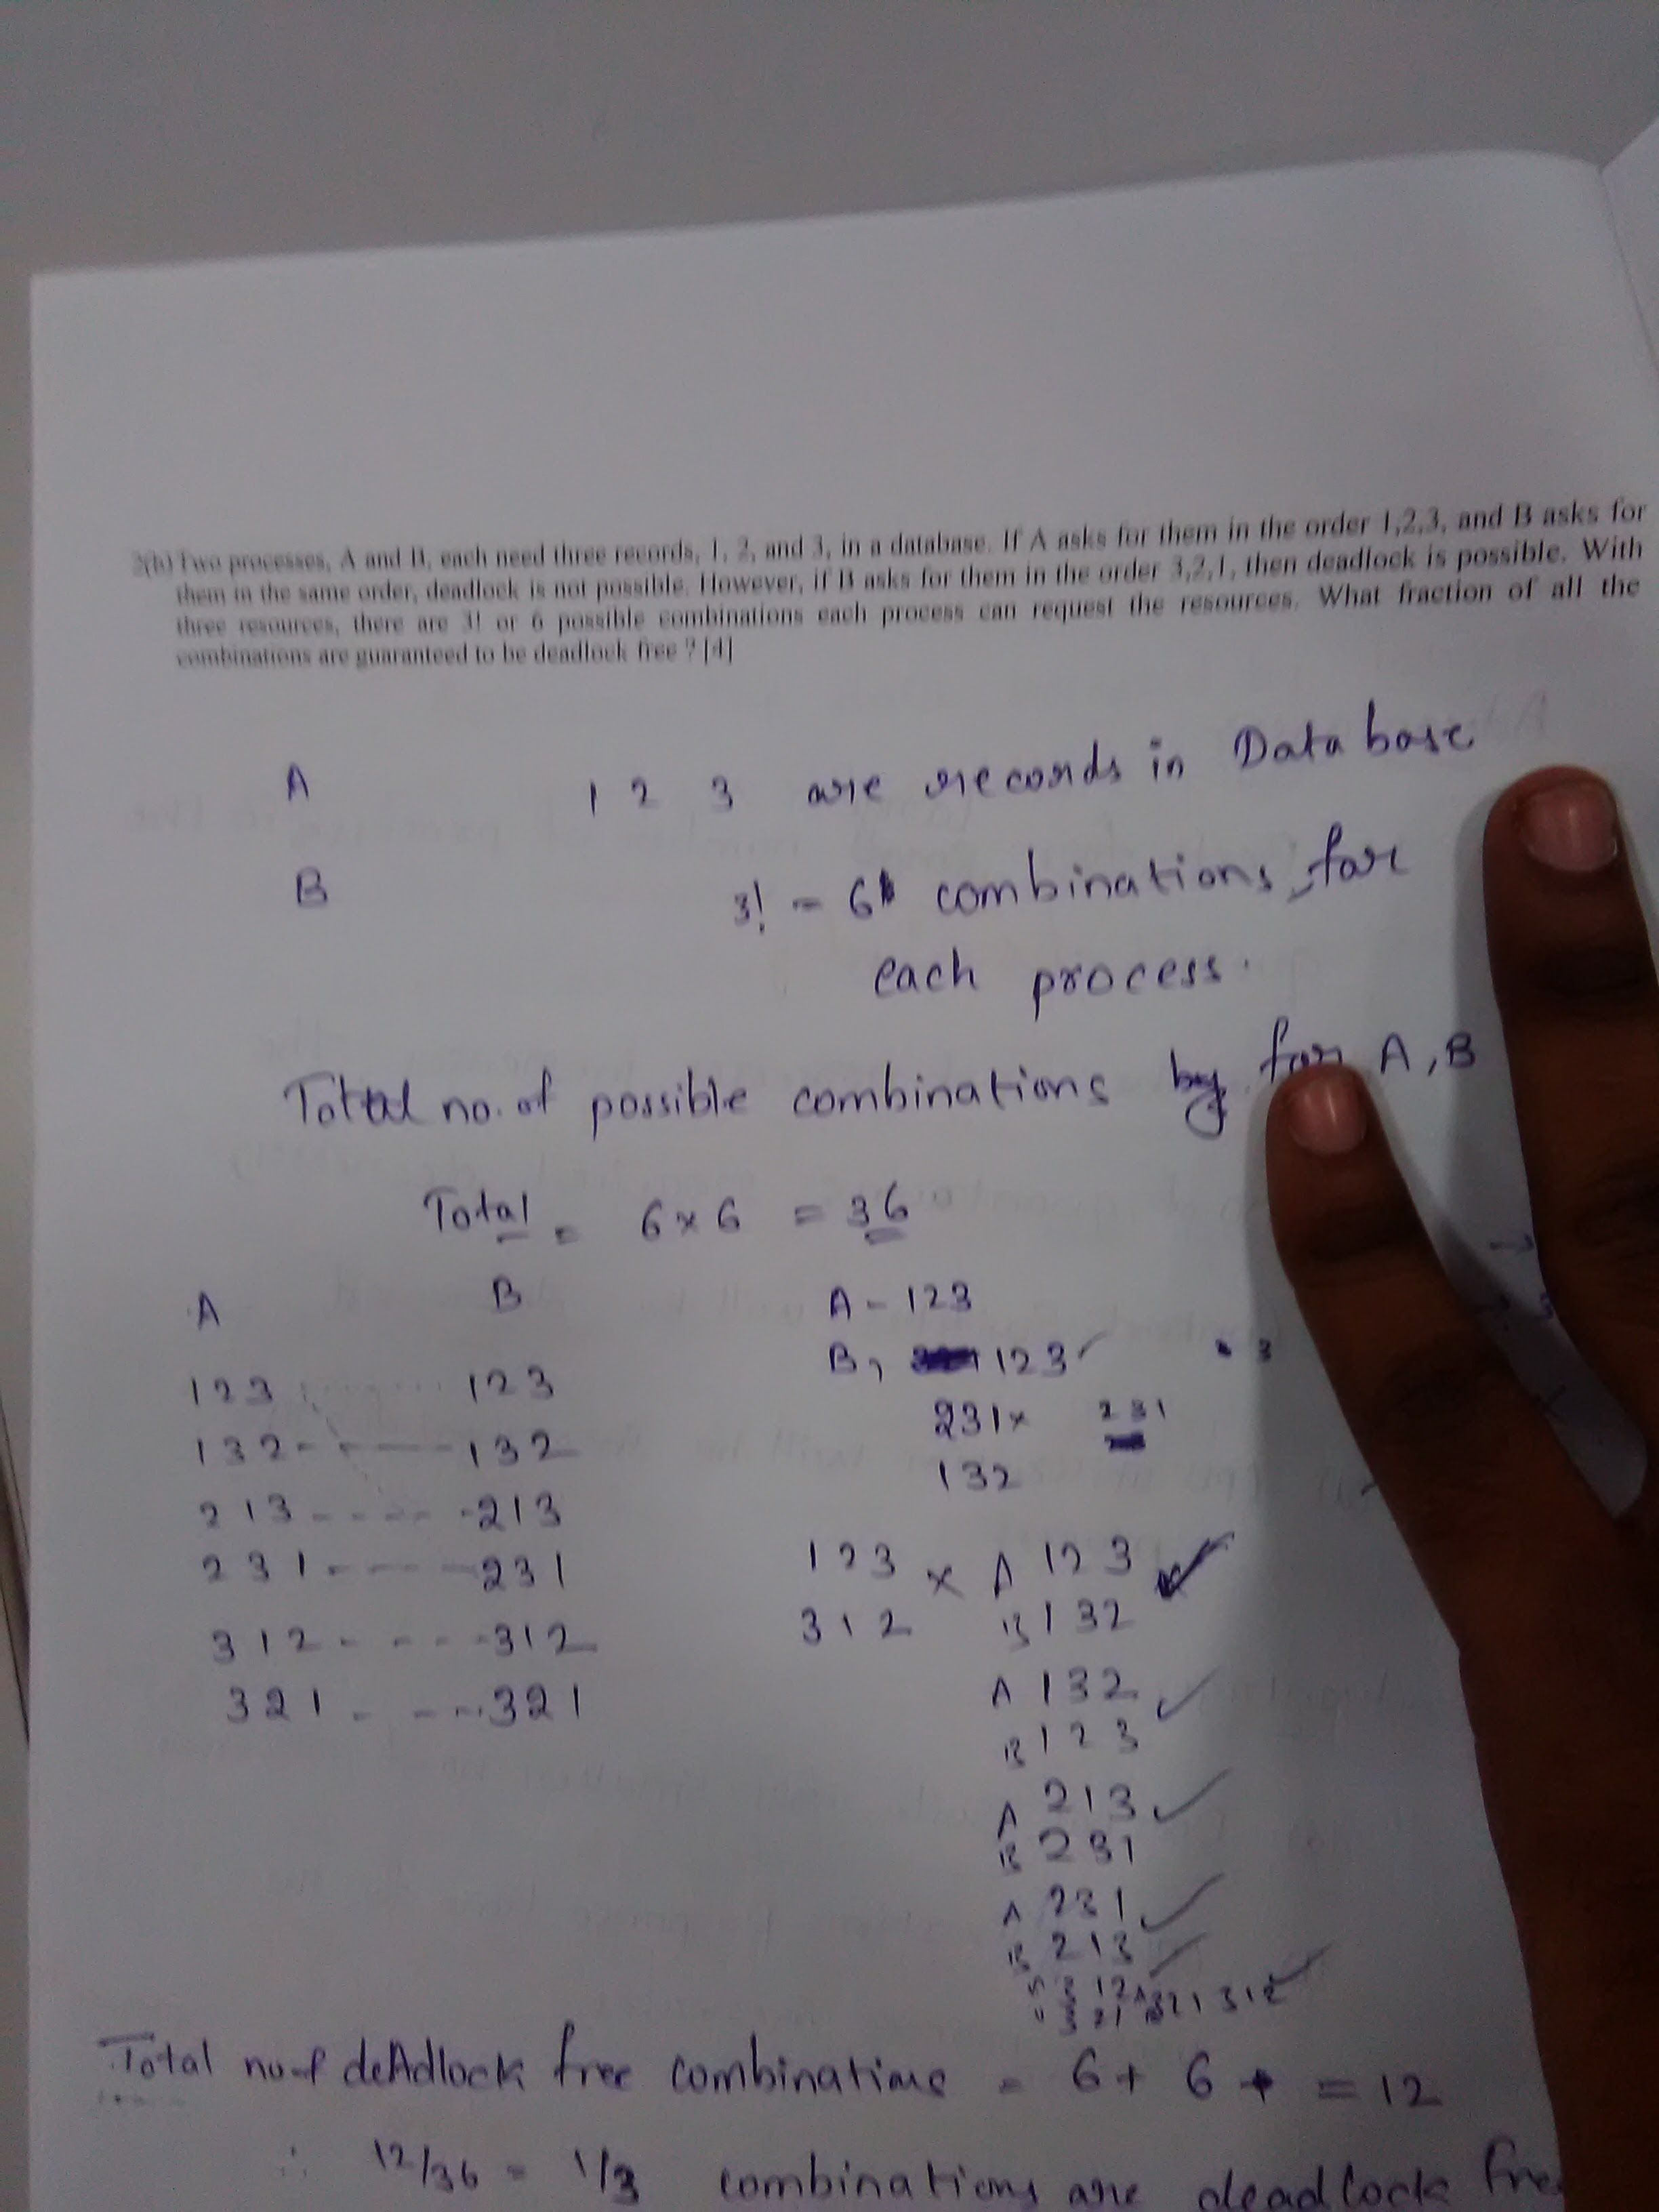 2(b) Two processes, A and B, each need three records, 1, 2, and 3, in a database. If A asks for them in the order 1,2,3, and B asks for
them in the same order, deadlock is not possible. However, if B asks for them in the order 3,2,1, then deadlock is possible. With
three resources, there are 3! or 6 possible combinations each process can request the resources. What fraction of all the
combinations are guaranteed to be deadlock free ? [4]
A 1 2 3 are records in Database
B 3! = 6 combinations for
each process.
Total no. of possible combinations by for A, B
Total = 6 × 6 = 36
A B A - 123
B, 123 ✓ 3
123 ........ 123
231 × 231
132 - - 132
132
213 - - - - - 213
231 - - - - 231
123 × A 123 ✓
312 B 132
312 - - - - 312
321 - - - - 321
A 132 ✓
B 123
A 213 ✓
B 231
A 231 ✓
B 213
312 ✓
321 321 312 ✓
Total no of deAdlock free combinations = 6 + 6 + = 12
∴ 12/36 = 1/3 combinations are deadlock